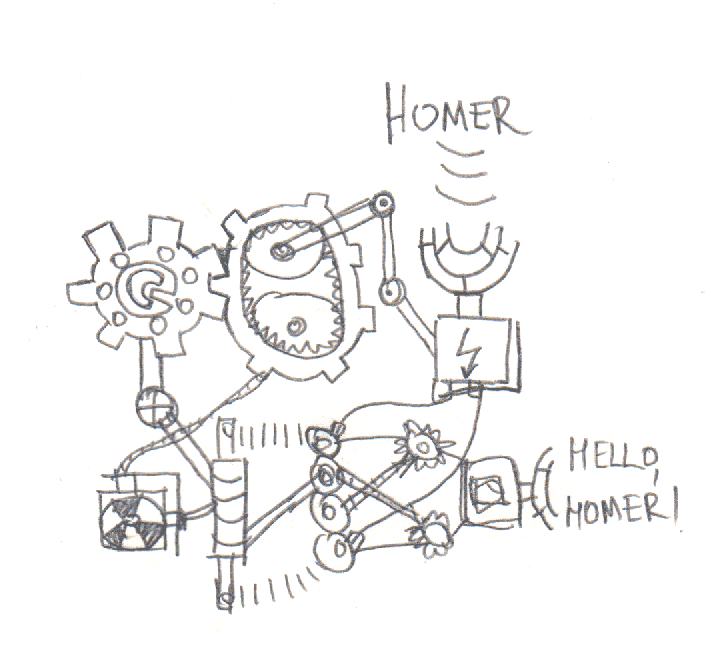 HOMER
HELLO,
HOMER!